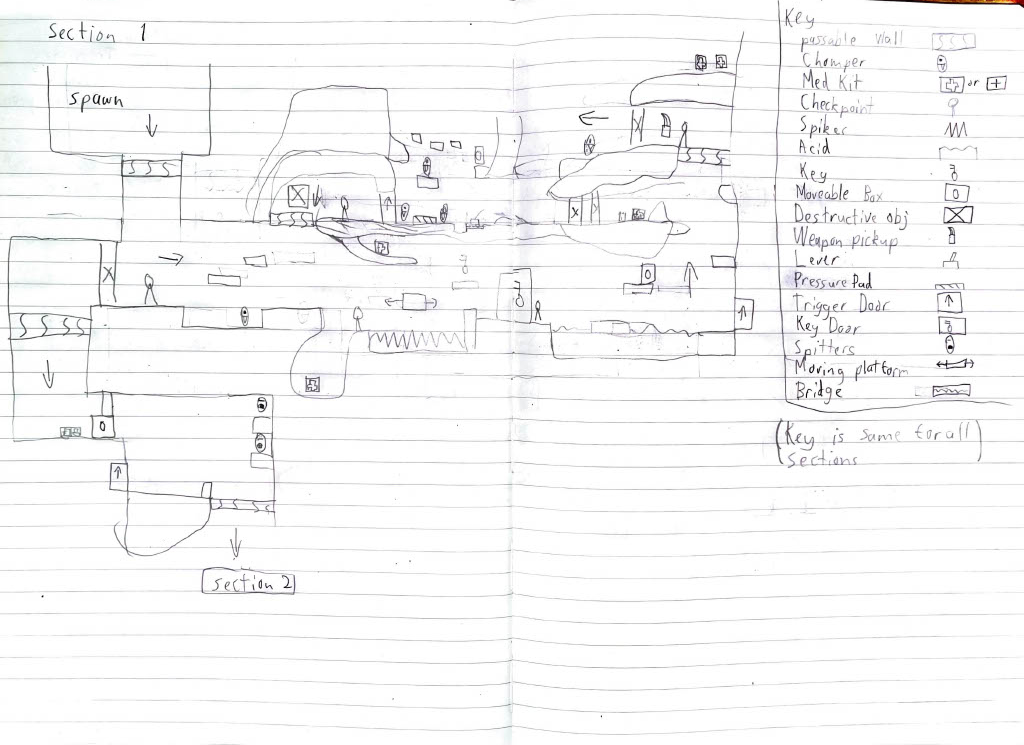 Section 1
spawn
section 2
Key
passable Wall
Chomper
Med Kit
or
Checkpoint
Spikes
Acid
Key
Moveable Box
Destructive obj
Weapon pickup
Lever
Pressure Pad
Trigger Door
Key Door
Spitters
Moving platform
Bridge
(Key is same for all
sections)